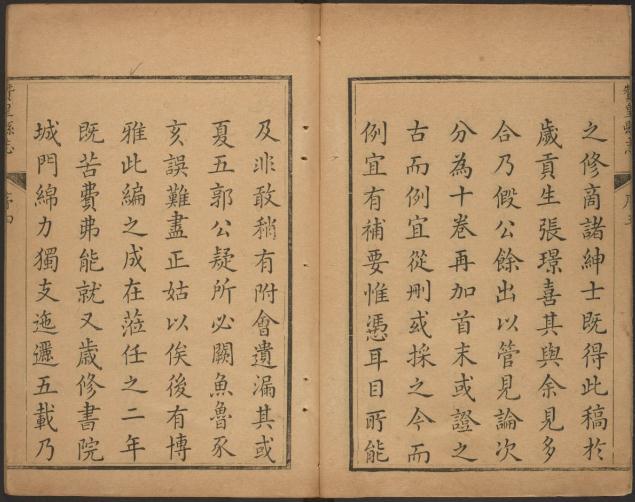 之修商諸紳士既得此稿於
歲貢生張璟喜其與余見多
合乃假公餘出以管見論次
分為十卷再加首末或證之
古而例宜從刪或採之今而
例宜有補要惟憑耳目所能
及非敢稍有附會遺漏其或
夏五郭公疑所必闕魚魯豕
亥誤難盡正姑以俟後有博
雅此編之成在蒞任之二年
既苦費弗能就又歲修書院
城門綿力獨支迤邐五載乃
皇縣志
序四